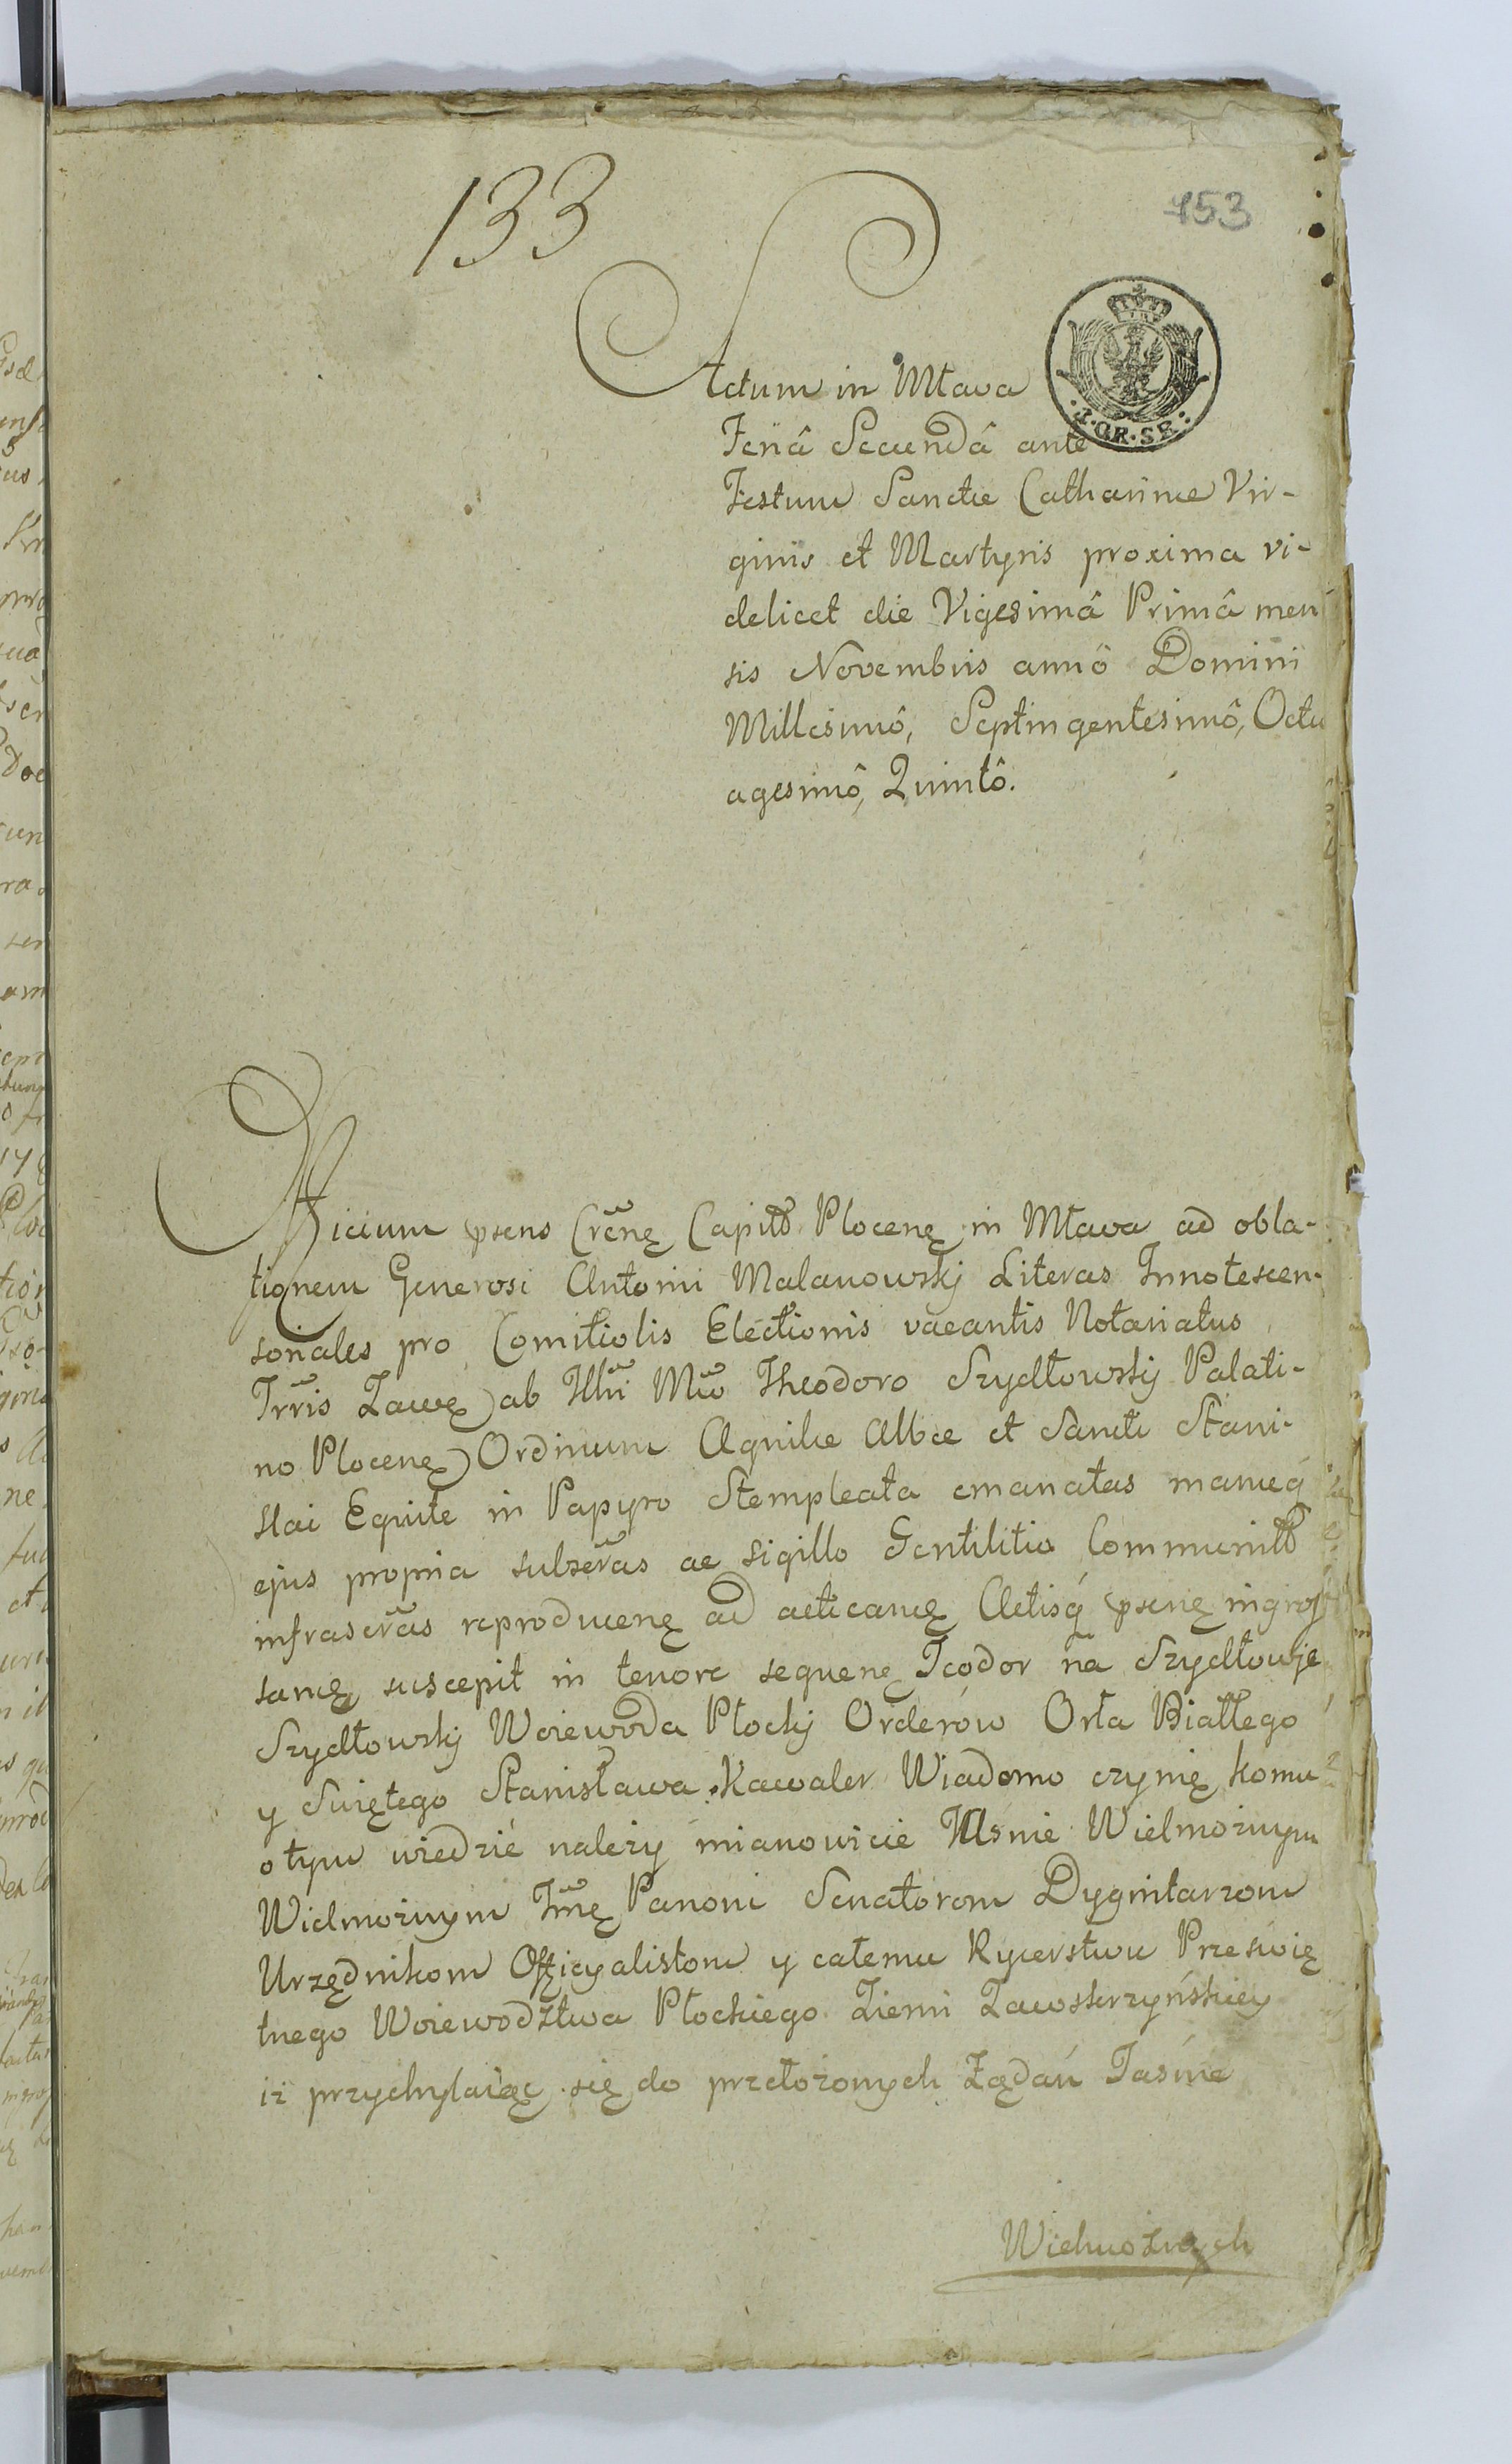 133
153
Actum in Mława
Feriâ Secundâ ante
Festum Sanctæ Catharinæ Vir-
ginis et Martyris proxima vi-
delicet die Vigesimâ Primâ men
sis Novembris annô Domini
Millesimô, Septingentesimô, Octu
agesimô, Quintô.
Officium psens Crenę Capitt Plocenę in Mława ad obla-
tionem Generosi Antonii Malanowskj Literas Innotescen-
soriales pro Comitiolis Electionis vacantis Notariatus
Trris Zawę ab Illri Mło Theodoro Szydłowskj Palati-
no Plocenę Ordinum Aquilæ Albæ et Sancti Stani-
slai Equite in Papyro Stempleata emanatas manuq
ejus propria subscras ac sigillo Gentilitio Communitt
infrascras reproducenę ad acticanę Actisq psenę ingros
sanę suscepit in tenore sequenę Teodor na Szydłowje
Szydłowskj Woiewoda Płockj Orderów Orła Białłego
y Swiętego Stanisława Kawaler Wiadomo czynię komu
otym wiedzié należy mianowicie JAśnie Wielmożnym
Wielmożnym Jmę Panom Senatorom Dygnitarzom
Urzędnikom Officyalistom y całemu Rycerstwu Przeswię
tnego Woiewodztwa Płockiego Ziemi Zawskrzyńskiey
iż przychylaiąc się do przełożonych Żądań Jaśnie
Wielmożnych
2.GR.SR.